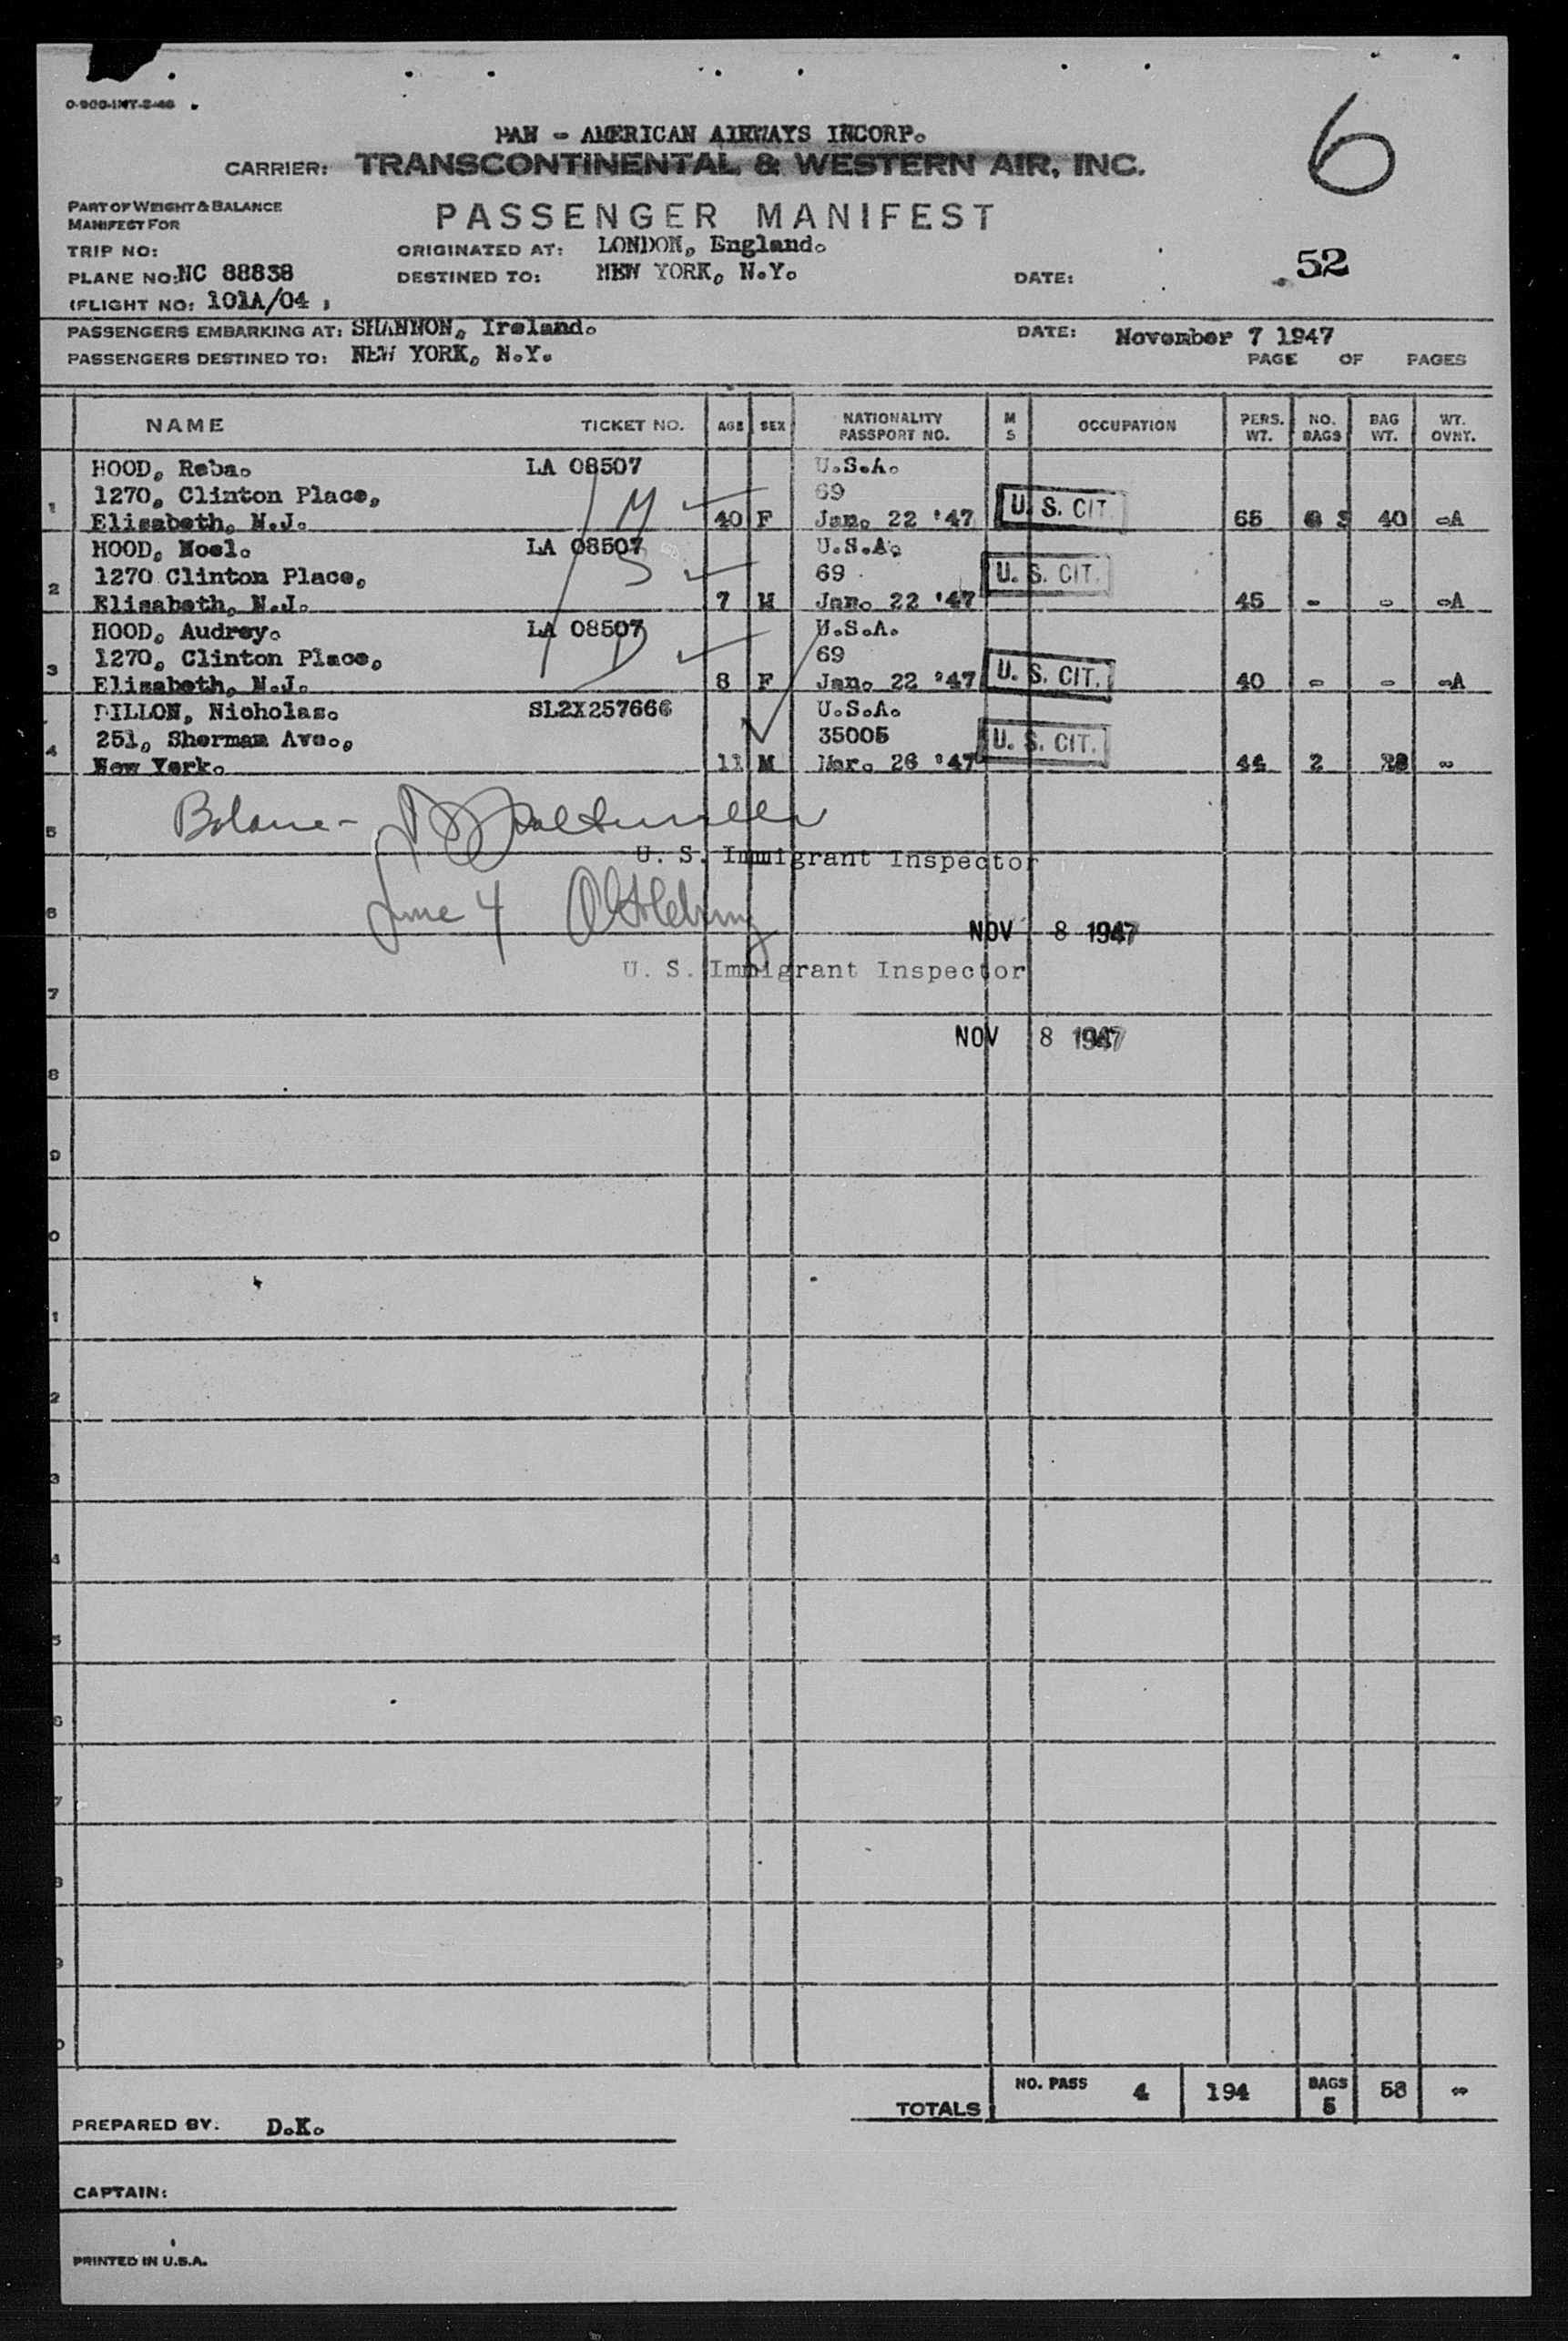 0-900-INT-2-46
6
PAN - AMERICAN AIRWAYS INCORP.
CARRIER: TRANSCONTINENTAL & WESTERN AIR, INC.
PART OF WEIGHT & BALANCE
MANIFEST FOR
PASSENGER MANIFEST
TRIP NO: ORIGINATED AT: LONDON, England.
PLANE NO: NC 88838 DESTINED TO: NEW YORK, N.Y. DATE: 52
(FLIGHT NO: 101A/04 )
PASSENGERS EMBARKING AT: SHANNON, Ireland. DATE: November 7 1947
PASSENGERS DESTINED TO: NEW YORK, N.Y. PAGE OF PAGES
NAME TICKET NO. AGE SEX NATIONALITY PASSPORT NO. M S OCCUPATION PERS. WT. NO. BAGS BAG WT. WT. OVNT.
HOOD, Reba. LA 08507 U.S.A.
1270, Clinton Place, M 69
1 Elizabeth, N.J. 40 F Jan. 22 '47 U. S. CIT. 65 3 40 -A
HOOD, Noel. LA 08507 U.S.A.
1270 Clinton Place, S 69
2 Elizabeth, N.J. 7 M Jan. 22 '47 U. S. CIT. 45 - - -A
HOOD, Audrey. LA 08507 U.S.A.
1270, Clinton Place, D 69
3 Elizabeth, N.J. 8 F Jan. 22 '47 U. S. CIT. 40 - - -A
DILLON, Nicholas. SL2X257666 U.S.A.
251, Sherman Ave., 35005
4 New York. 11 M Mar. 26 '47 U. S. CIT. 44 2 -
5
U. S. Immigrant Inspector
6 Line 4
NOV 8 1947
U. S. Immigrant Inspector
7
NOV 8 1947
8
9
0
1
2
3
4
5
6
7
8
9
0
NO. PASS 4 194 BAGS 5 58 -
TOTALS
PREPARED BY: D.K.
CAPTAIN:
PRINTED IN U.S.A.